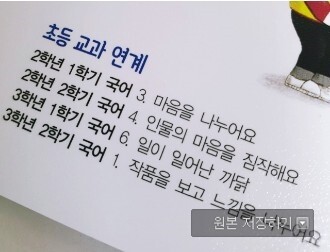 초등 교과 연계
2학년 1학기 국어 3. 마음을 나누어요
2학년 2학기 국어 4. 인물의 마음을 짐작해요
3학년 1학기 국어 6. 일이 일어난 까닭
3학년 2학기 국어 1. 작품을 보고 느낌을
원본 저장하기